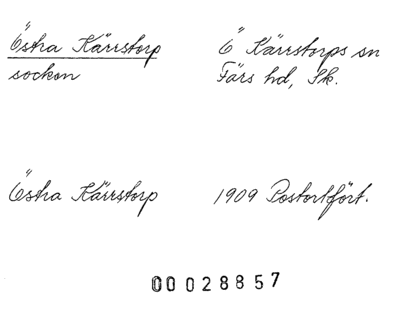 Östra Kärrstorp
Ö Kärrstorps sn
socken
Färs hd, Sk.
Östra Kärrstorp
1909 Postortfört.
00028857